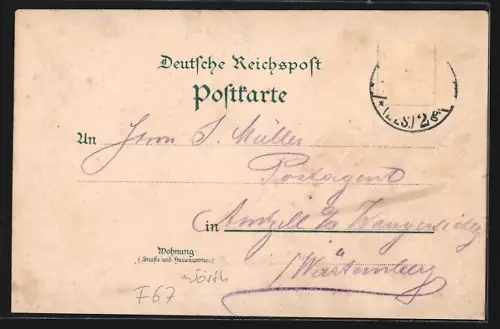 Deutsche Reichspost
Postkarte
An Herrn S. Müller
Postagent
in Amtzell
Wohnung
(Straße und Hausnummer)
Württemberg
Wörth
F67